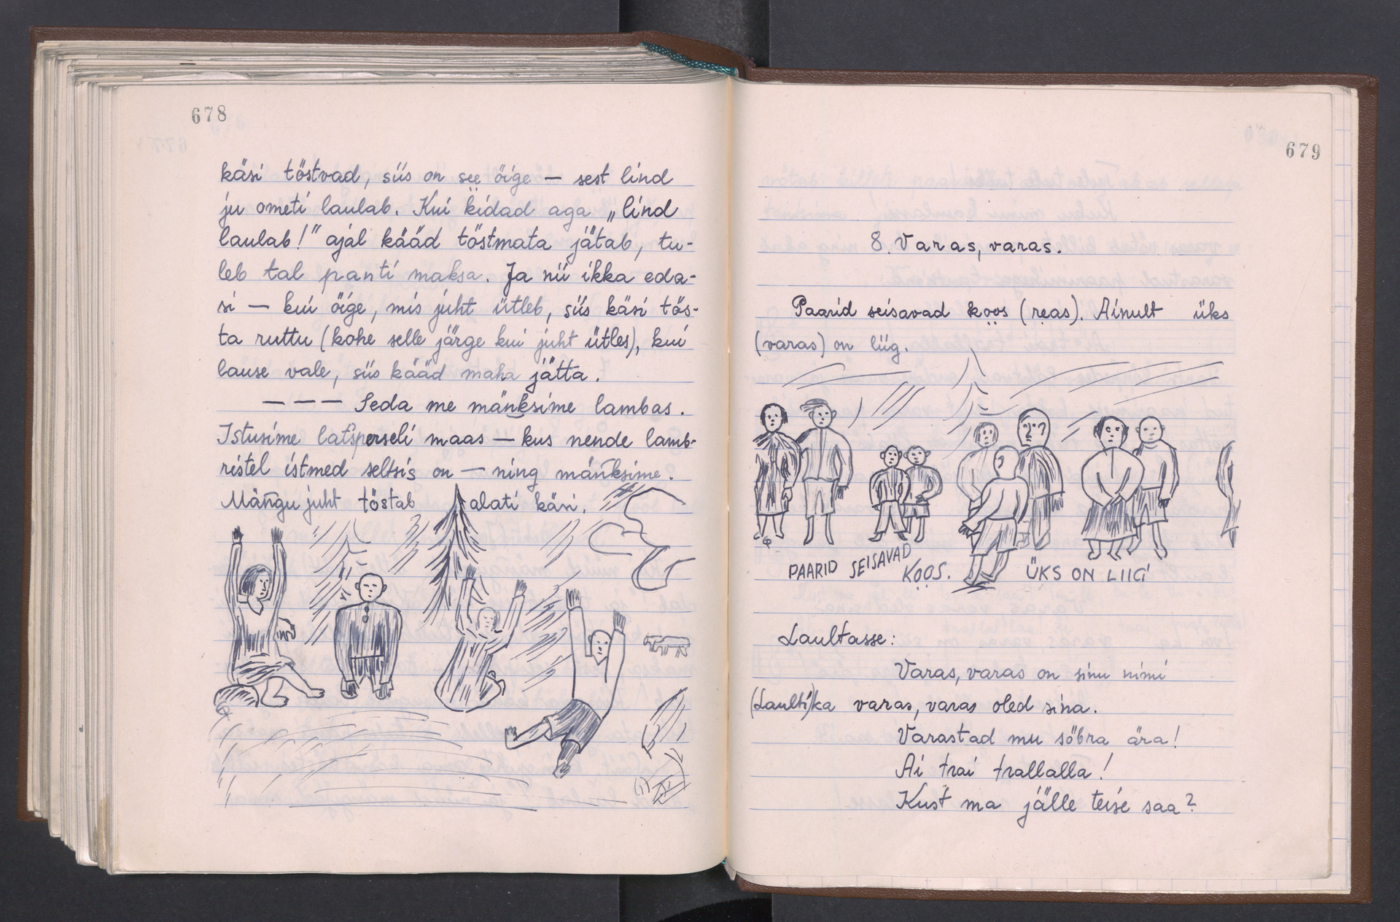 678
käsi tõstvad, siis on see õige — sest lind
ju ometi laulab. Kui kidad aga „lind
laulab!" ajal kääd tõstmata jätab, tu-
leb tal panti maksa. Ja nii ikka eda-
si — kui õige, mis juht ütleb, siis käsi tõs-
ta ruttu (kohe selle järge kui juht ütles), kui
lause vale, siis kääd maha jätta.
— — — Seda me mänksime lambas.
Istusime latsperseli maas — kus nende lamb-
ristel istmed seltsis on — ning mänksime.
Mängu juht tõstab alati käsi.
679
8. Varas, varas.
Paarid seisavad koos (reas). Ainult üks
(varas) on liig.
PAARID SEISAVAD KOOS. ÜKS ON LIIG
Laultasse:
Varas, varas on sinu nimi
(Laulti)ka varas, varas oled sina.
Varastad mu sõbra ära!
Ai trai trallalla!
Kust ma jälle teise saa?